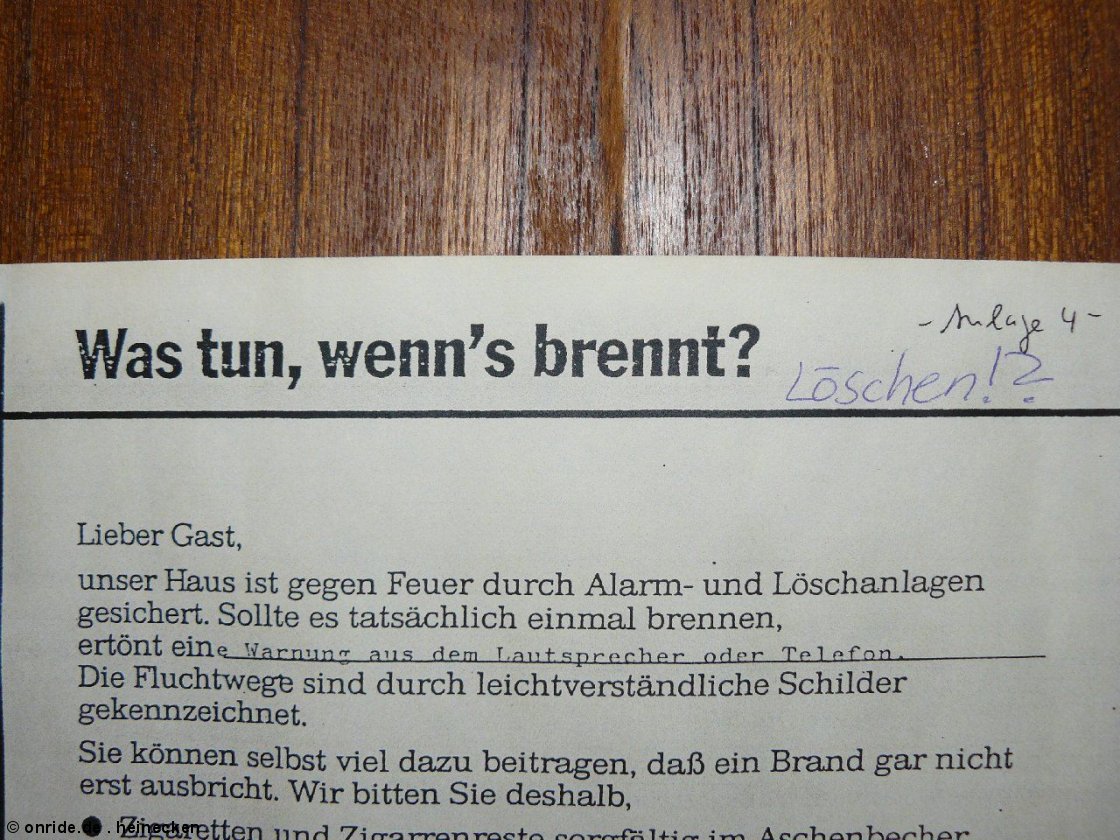 - Anlage 4 -
Was tun, wenn's brennt? Löschen!?
Lieber Gast,
unser Haus ist gegen Feuer durch Alarm- und Löschanlagen
gesichert. Sollte es tatsächlich einmal brennen,
ertönt eine Warnung aus dem Lautsprecher oder Telefon.
Die Fluchtwege sind durch leichtverständliche Schilder
gekennzeichnet.
Sie können selbst viel dazu beitragen, daß ein Brand gar nicht
erst ausbricht. Wir bitten Sie deshalb,
● Zigaretten und Zigarrenreste sorgfältig im Aschenbecher
© onride.de . heinecken